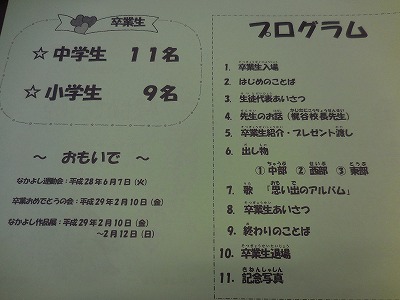 卒業生
☆中学生 11名
☆小学生 9名
～ おもいで ～
なかよし運動会：平成28年6月7日（火）
卒業おめでとうの会：平成29年2月10日（金）
なかよし作品展：平成29年2月10日（金）
～2月12日（日）
プログラム
1. 卒業生入場
2. はじめのことば
3. 生徒代表あいさつ
4. 先生のお話（梶谷校長先生）
5. 卒業生紹介・プレゼント渡し
6. 出し物
①中部 ②西部 ③東部
7. 歌 「思い出のアルバム」
8. 卒業生あいさつ
9. 終わりのことば
10. 卒業生退場
11. 記念写真